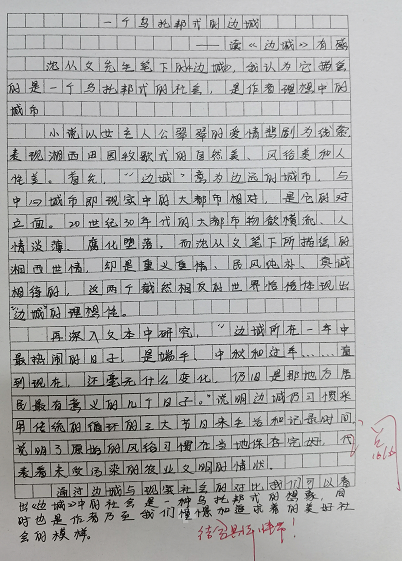 一个乌托邦式的边城
——读《边城》有感
沈从文先生笔下的《边城》,我认为它描绘
的是一个乌托邦式的社会,是作者理想中的
城市
小说以女主人公翠翠的爱情悲剧为线索
表现湘西田园牧歌式的自然美、风俗美和人
性美。首先,“边城”意为边远的城市,与
中心城市即现实中的大都市相对,是它的对
立面。20世纪30年代的大都市物欲横流、人
情淡薄、腐化堕落,而沈从文笔下所描绘的
湘西世情,却是重义重情、民风纯朴、真诚
相待的,这两个截然相反的世界恰恰体现出
“边城”的理想性。
再深入文本中研究,“边城所在一年中
最热闹的日子,是端午、中秋和过年……直
到现在,还毫无什么变化,仍旧是那地方居
民最有意义的几个日子。”说明边城仍习惯采
用传统的循环的三大节日来生活和记录时间
说明了原始的风俗习惯在当地保存完好,代
表着未受污染的农业文明的情状。
通过边城与现实社会的对比,我们可以看
出《边城》中的社会是一种乌托邦式的想象,同
时也是作者乃至我们憧憬和追求着的美好社
会的模样。